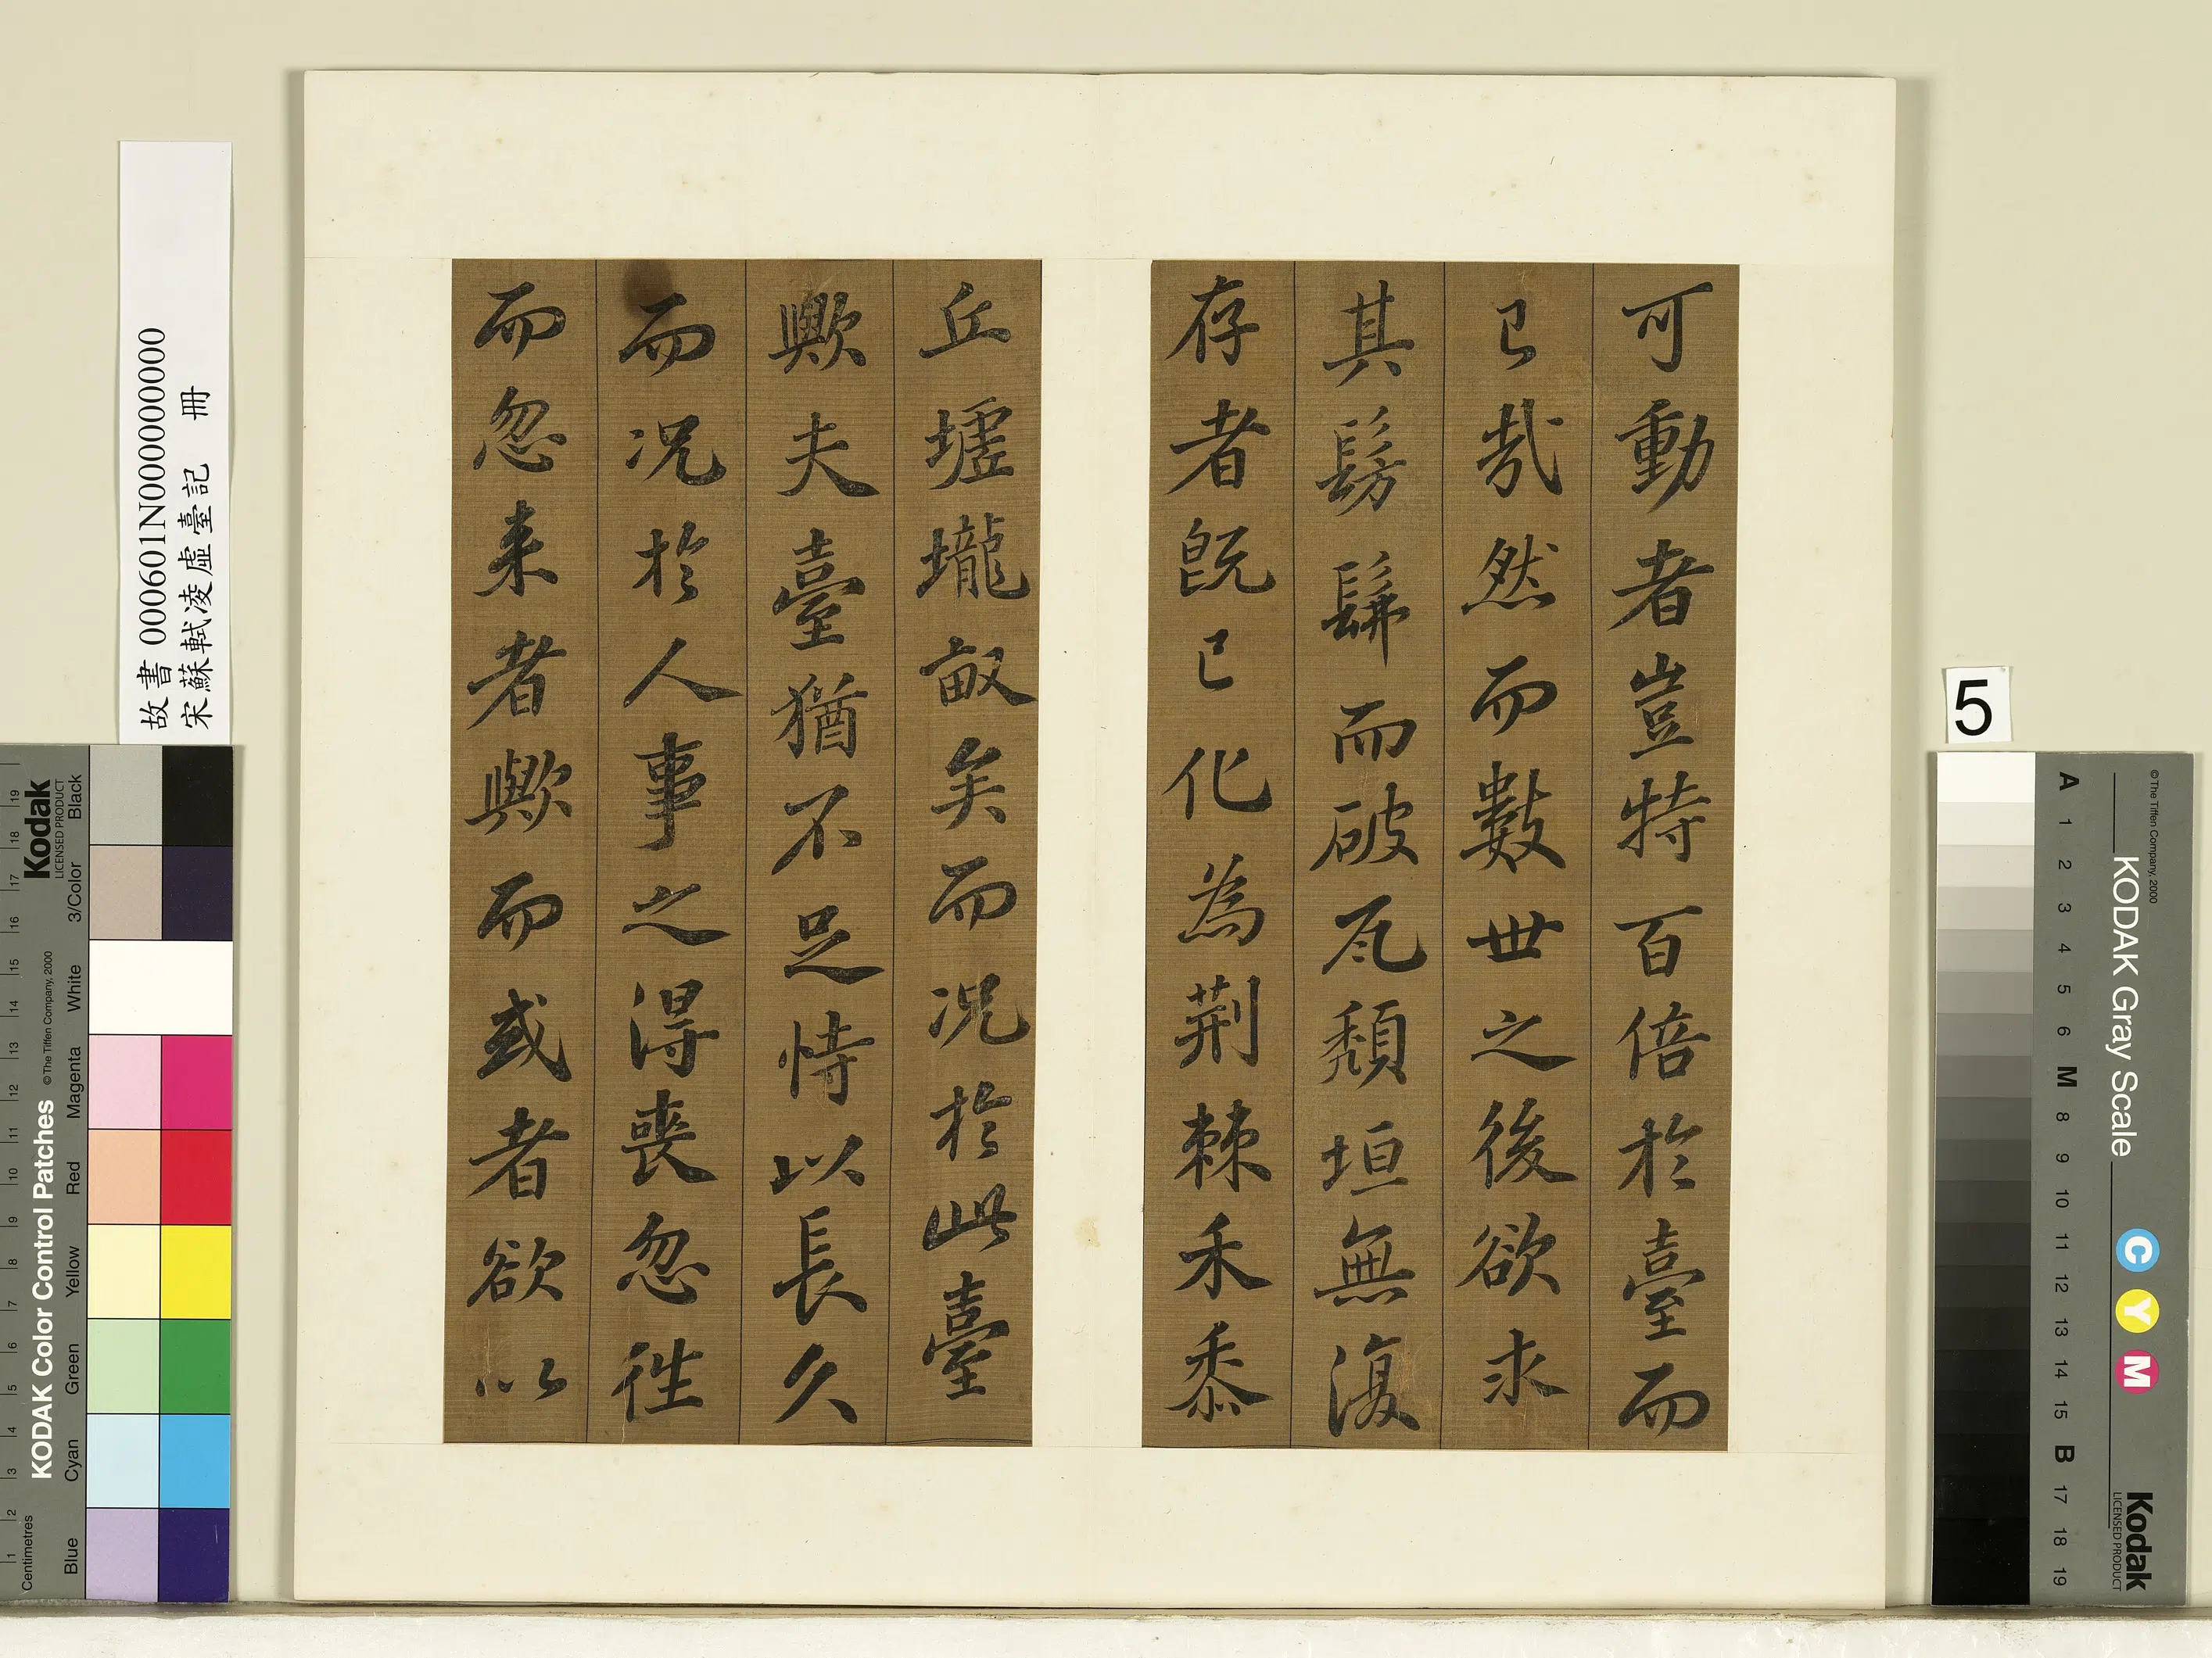 可動者豈特百倍於臺而
已哉然而數世之後欲求
其髣髴而破瓦頹垣無復
存者既已化為荆棘禾黍
丘墟壠畝矣而況於此臺
歟夫臺猶不足恃以長久
而況於人事之得喪忽往
而忽来者歟而或者欲以
故書 000601N000000000
宋蘇軾凌虛臺記 冊
5
KODAK Color Control Patches
©The Tiffen Company, 2000
Kodak
LICENSED PRODUCT
Centimetres
Blue
Cyan
Green
Yellow
Red
Magenta
White
3/Color
Black
1 2 3 4 5 6 7 8 9 10 11 12 13 14 15 16 17 18 19
KODAK Gray Scale
©The Tiffen Company, 2000
C Y M
Kodak
LICENSED PRODUCT
A 1 2 3 4 5 6 M 8 9 10 11 12 13 14 15 B 17 18 19